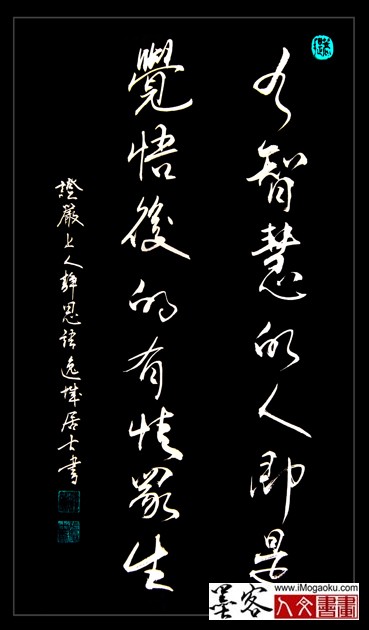 有智慧的人即是
覺悟後的有情眾生
證嚴上人靜思語逸城居士書
www.iMogaoku.com
墨客人文書畫